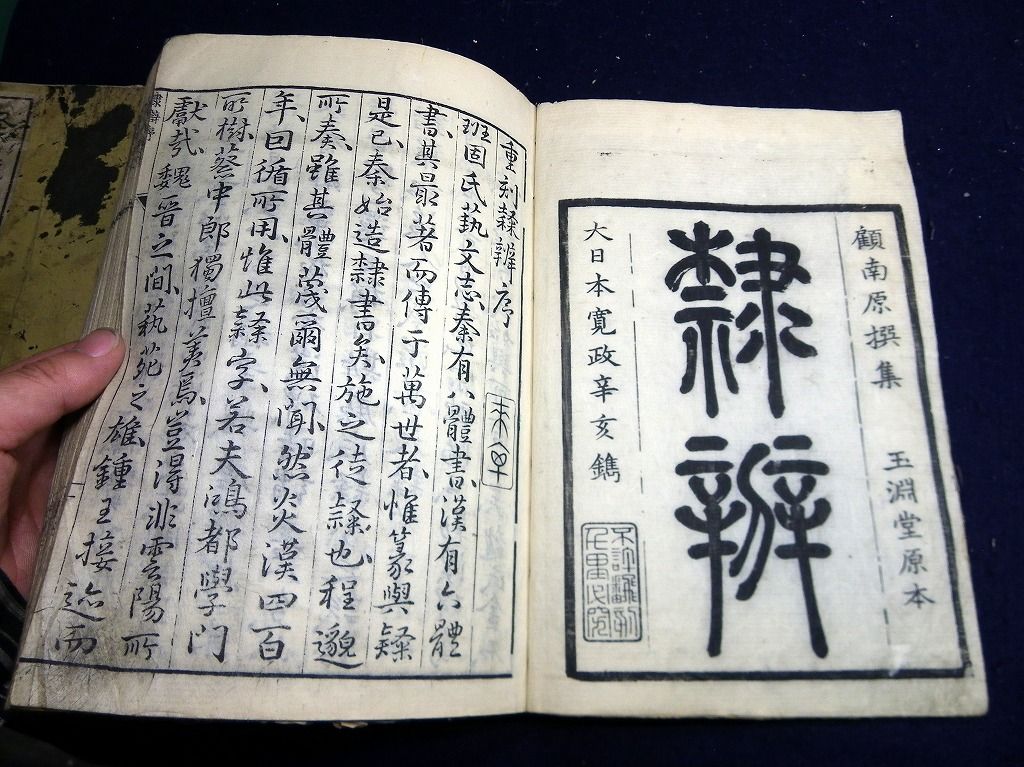 顧南原撰集
玉淵堂原本
隸辨
大日本寛政辛亥鐫
不許翻刻
千里必究
重刻隸辨序
班固氏藝文志秦有八體書漢有六體
書其最著而傳于萬世者惟篆與隸
是已秦始造隸書矣施之徒隸也程邈
所奏雖其體蔑爾無聞然炎漢四百
年曰循所用惟此隸字若夫鴻都學門
所樹蔡中郎獨擅美焉豈得非雲陽所
獻哉魏晉之間藝苑之雄鍾王接迹而
隸辨序